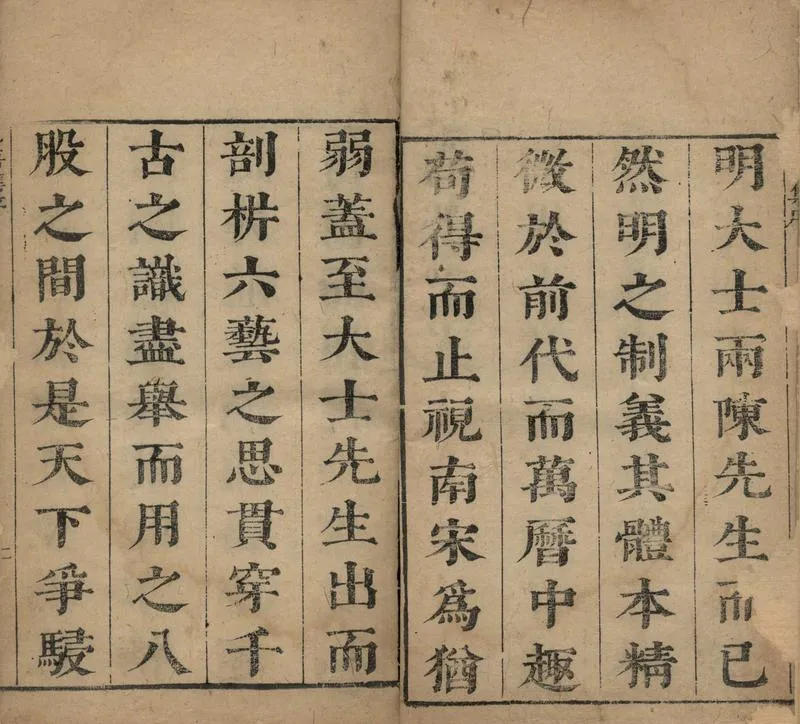 明大士兩陳先生而已
然明之制義其體本精
微於前代而萬曆中趣
苟得而止視南宋爲猶
弱蓋至大士先生出而
剖析六藝之思貫穿千
古之識盡舉而用之八
股之間於是天下爭駸